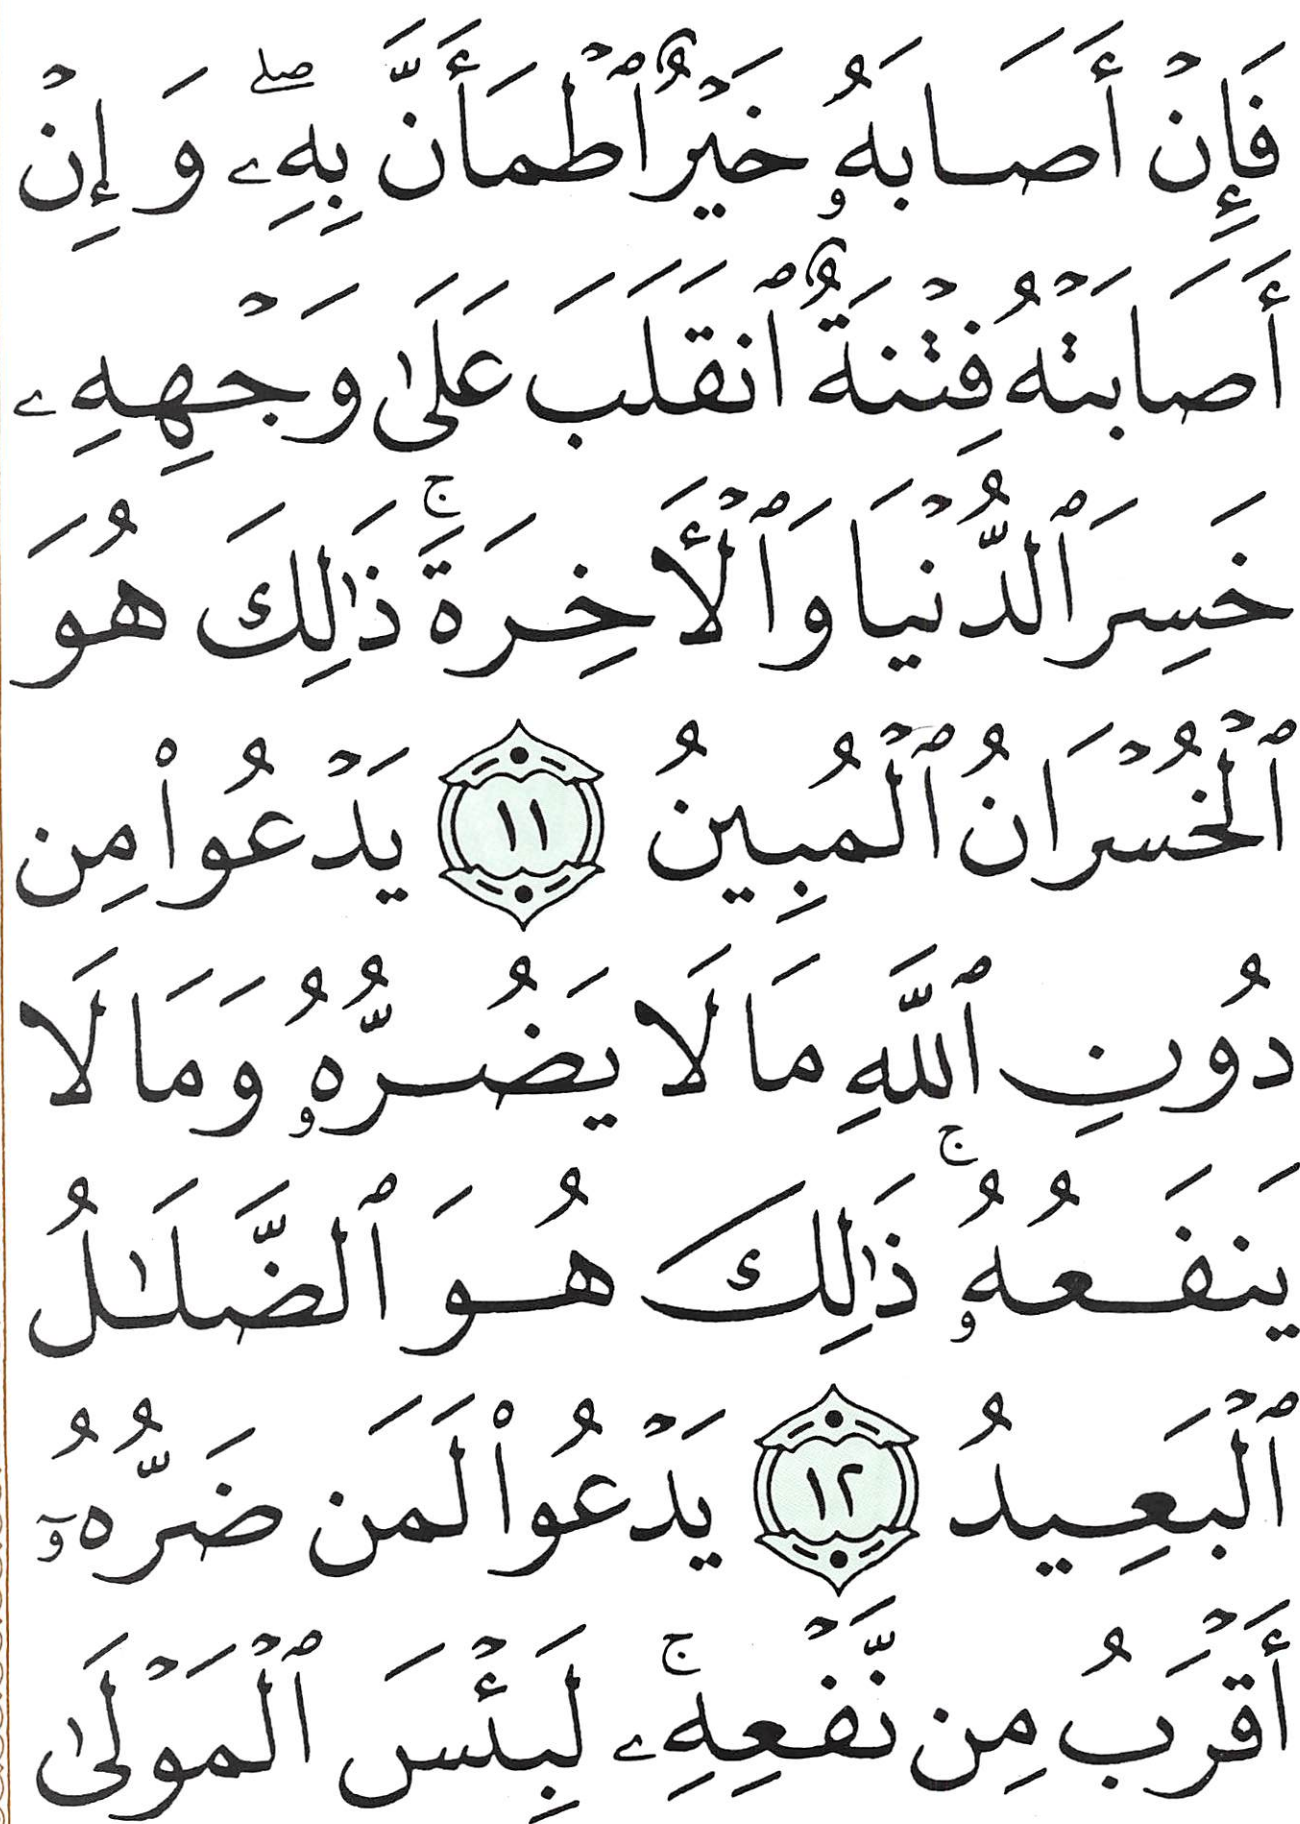 فَإِنۡ أَصَابَهُۥ خَيۡرٌ ٱطۡمَأَنَّ بِهِۦۖ وَإِنۡ
أَصَابَتۡهُ فِتۡنَةٌ ٱنقَلَبَ عَلَىٰ وَجۡهِهِۦ
خَسِرَ ٱلدُّنۡيَا وَٱلۡأَخِرَةَۚ ذَٰلِكَ هُوَ
ٱلۡخُسۡرَانُ ٱلۡمُبِينُ ١١ يَدۡعُواْ مِن
دُونِ ٱللَّهِ مَا لَا يَضُرُّهُۥ وَمَا لَا
يَنفَعُهُۥۚ ذَٰلِكَ هُوَ ٱلضَّلَٰلُ
ٱلۡبَعِيدُ ١٢ يَدۡعُواْ لَمَن ضَرُّهُۥٓ
أَقۡرَبُ مِن نَّفۡعِهِۦۚ لَبِئۡسَ ٱلۡمَوۡلَىٰ